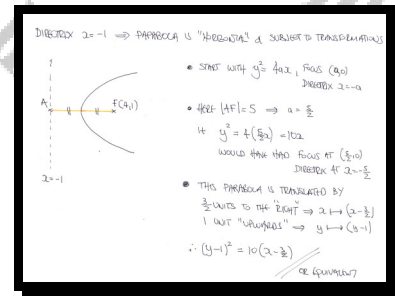 DIRECTRIX x=-1 ⟹ PARABOLA IS "HORIZONTAL" & SUBJECT TO TRANSFORMATIONS
A
F(4,1)
x=-1
• START WITH y²=4ax, FOCUS (a,0)
DIRECTRIX x=-a
• HERE |AF|=5 ⟹ a=5/2
IF y²=4(5/2x)=10x
WOULD HAVE HAD FOCUS AT (5/2,0)
DIRECTRIX AT x=-5/2
• THIS PARABOLA IS TRANSLATED BY
3/2 UNITS TO THE "RIGHT" ⟹ x ↦ (x-3/2)
1 UNIT "UPWARDS" ⟹ y ↦ (y-1)
∴ (y-1)²=10(x-3/2)
OR EQUIVALENT